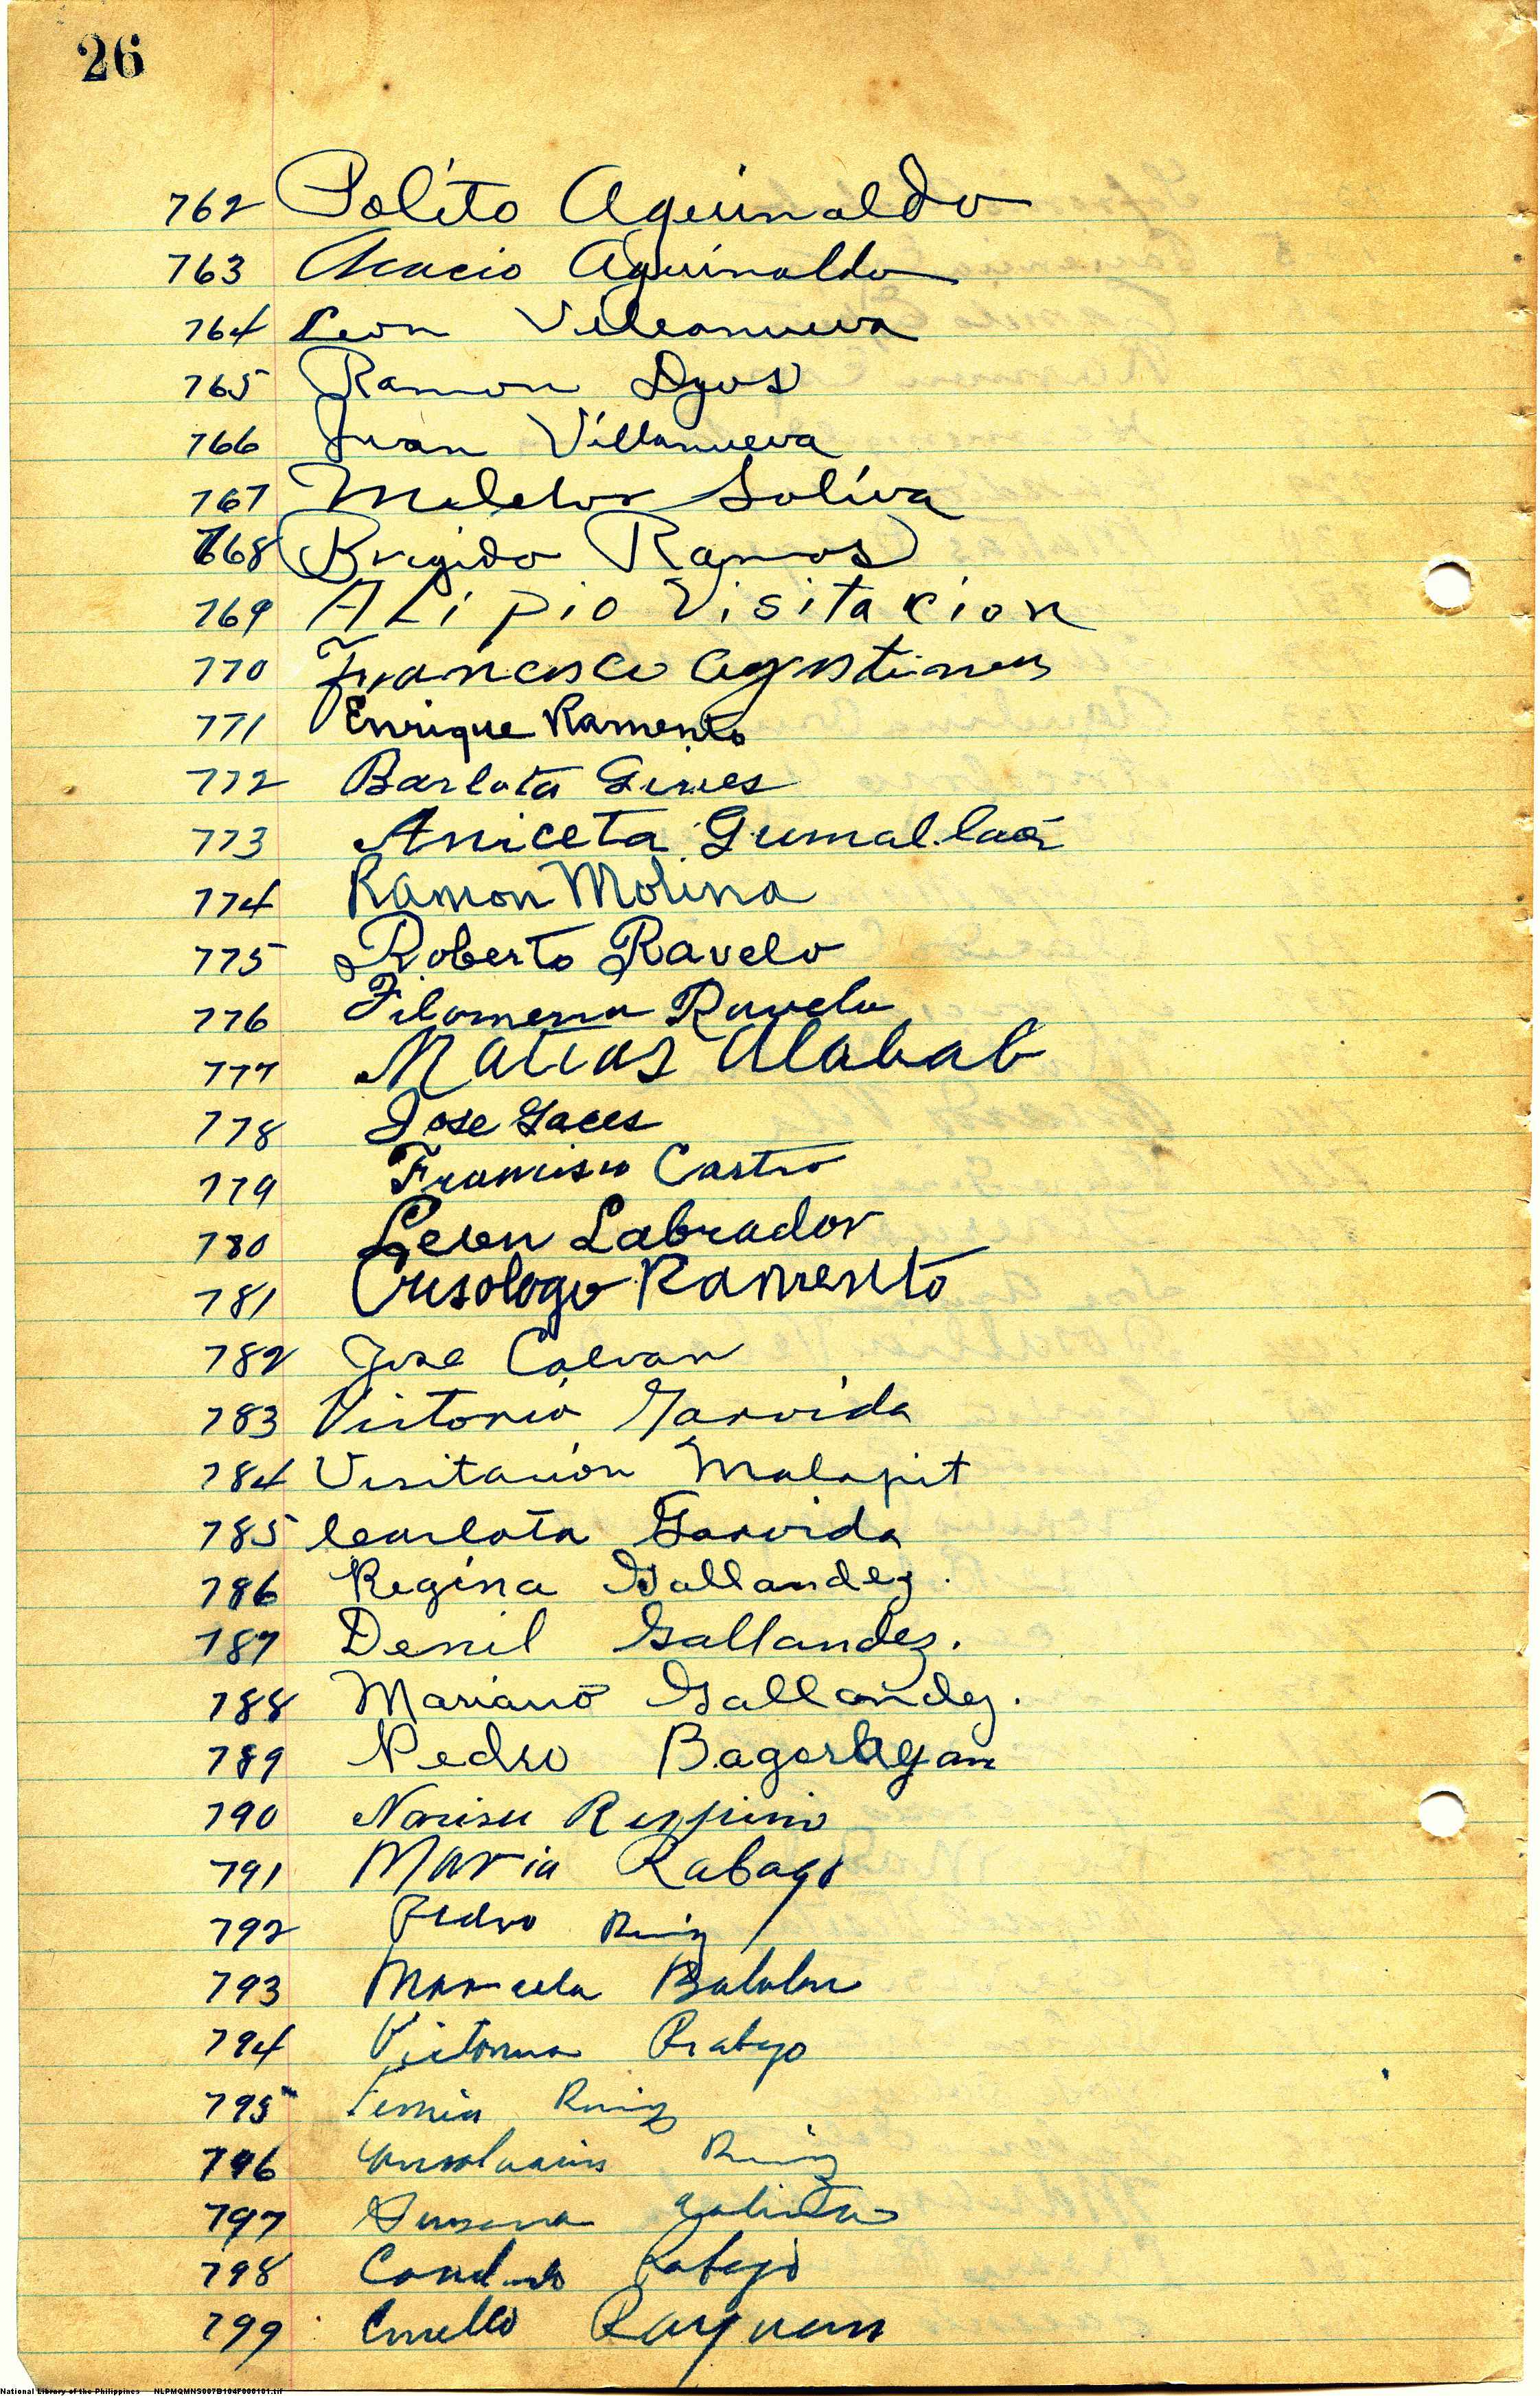 26
762 Polito Aguinaldo
763 Acacio Aguinaldo
764 Leon Villanueva
765 Ramon Dyos
766 Juan Villanueva
767 Soliva
768 Brigido Ramos
769 Alipio Visitacion
770 Francisco
771 Enrique Ramento
772 Barlota Gines
773 Aniceta Gumallaoi
774 Ramon Molina
775 Roberto Ravelo
776 Filomena Ravelo
777 Matias Alabab
778 Jose Gaces
779 Francisco Castro
780 Leon Labrador
781 Crisologo Ramento
782 Jose Calvan
783 Victorio Garvida
784 Visitacion Malapit
785 Carlota Garvida
786 Regina Gallandez.
787 Denil Gallandez.
788 Mariano Gallandez.
789 Pedro
790 Narciso Respicio
791 Maria Rabago
792 Pedro Ruiz
793 Marcela
794 Victorina Rabago
795 Ruiz
796 Consolacion Ruiz
797 Susana
798 Rabago
799
National Library of the Philippines NLPMQMNS007B104F000101.tif